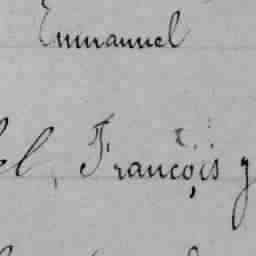 Emmanuel
el, François